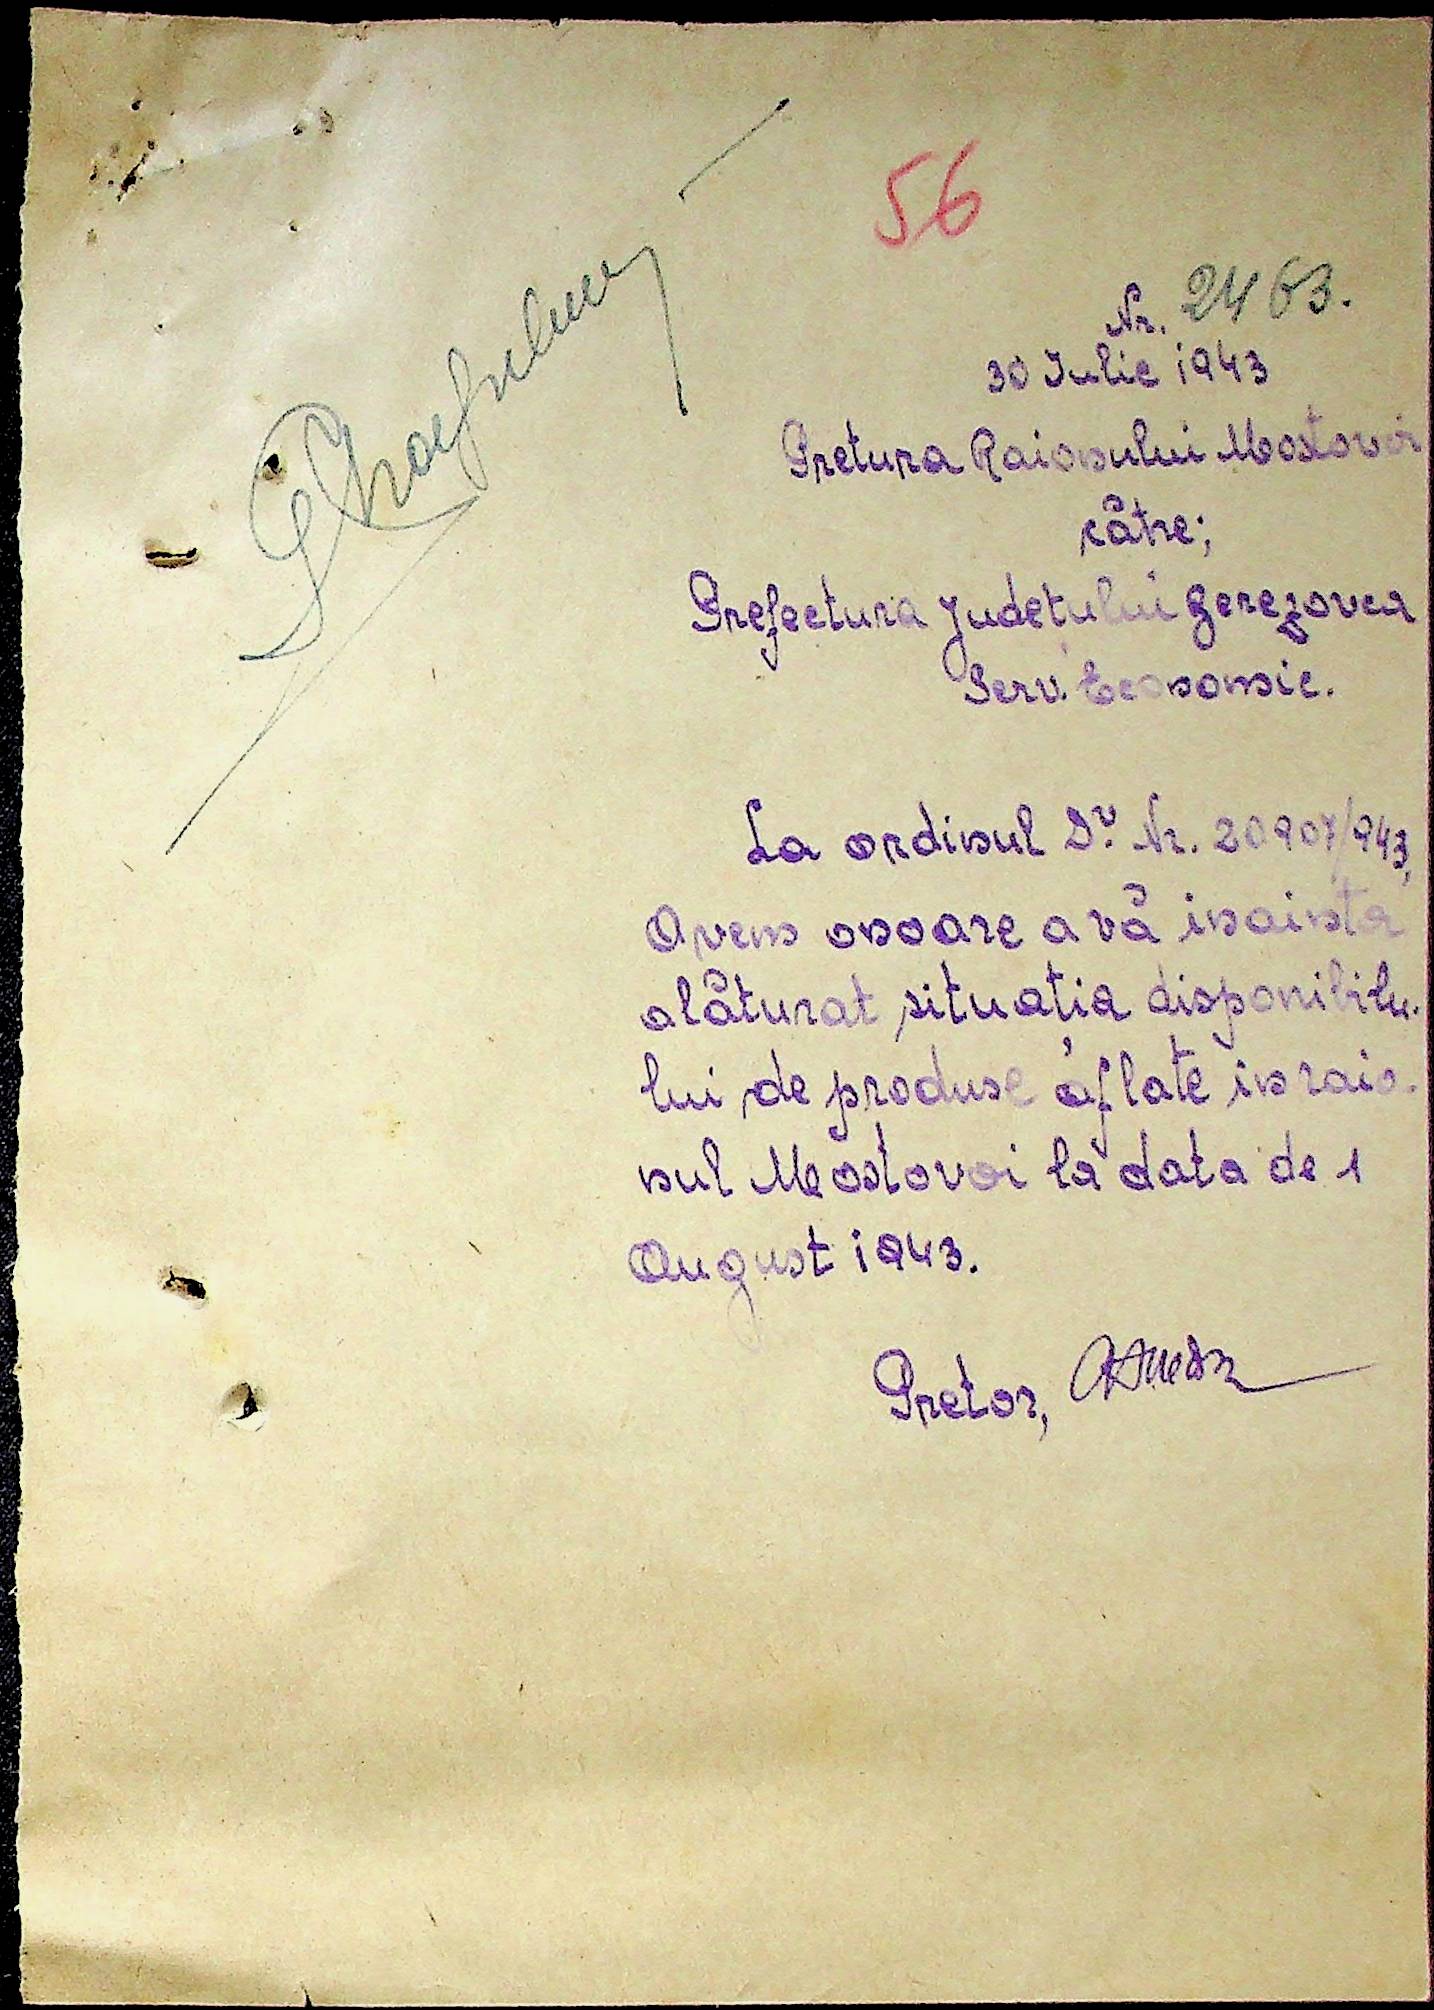 56
Nr. 2463.
30 Iulie 1943
Pretura Raionului Mostovoi
către;
Prefectura Județului Berezovca
Serv. Economic.
La ordinul Dv. Nr. 20907/943,
Avem onoare a vă inainta
alăturat situația disponibilu-
lui de produse aflate in raio-
nul Mostovoi la data de 1
August 1943.
Pretor,